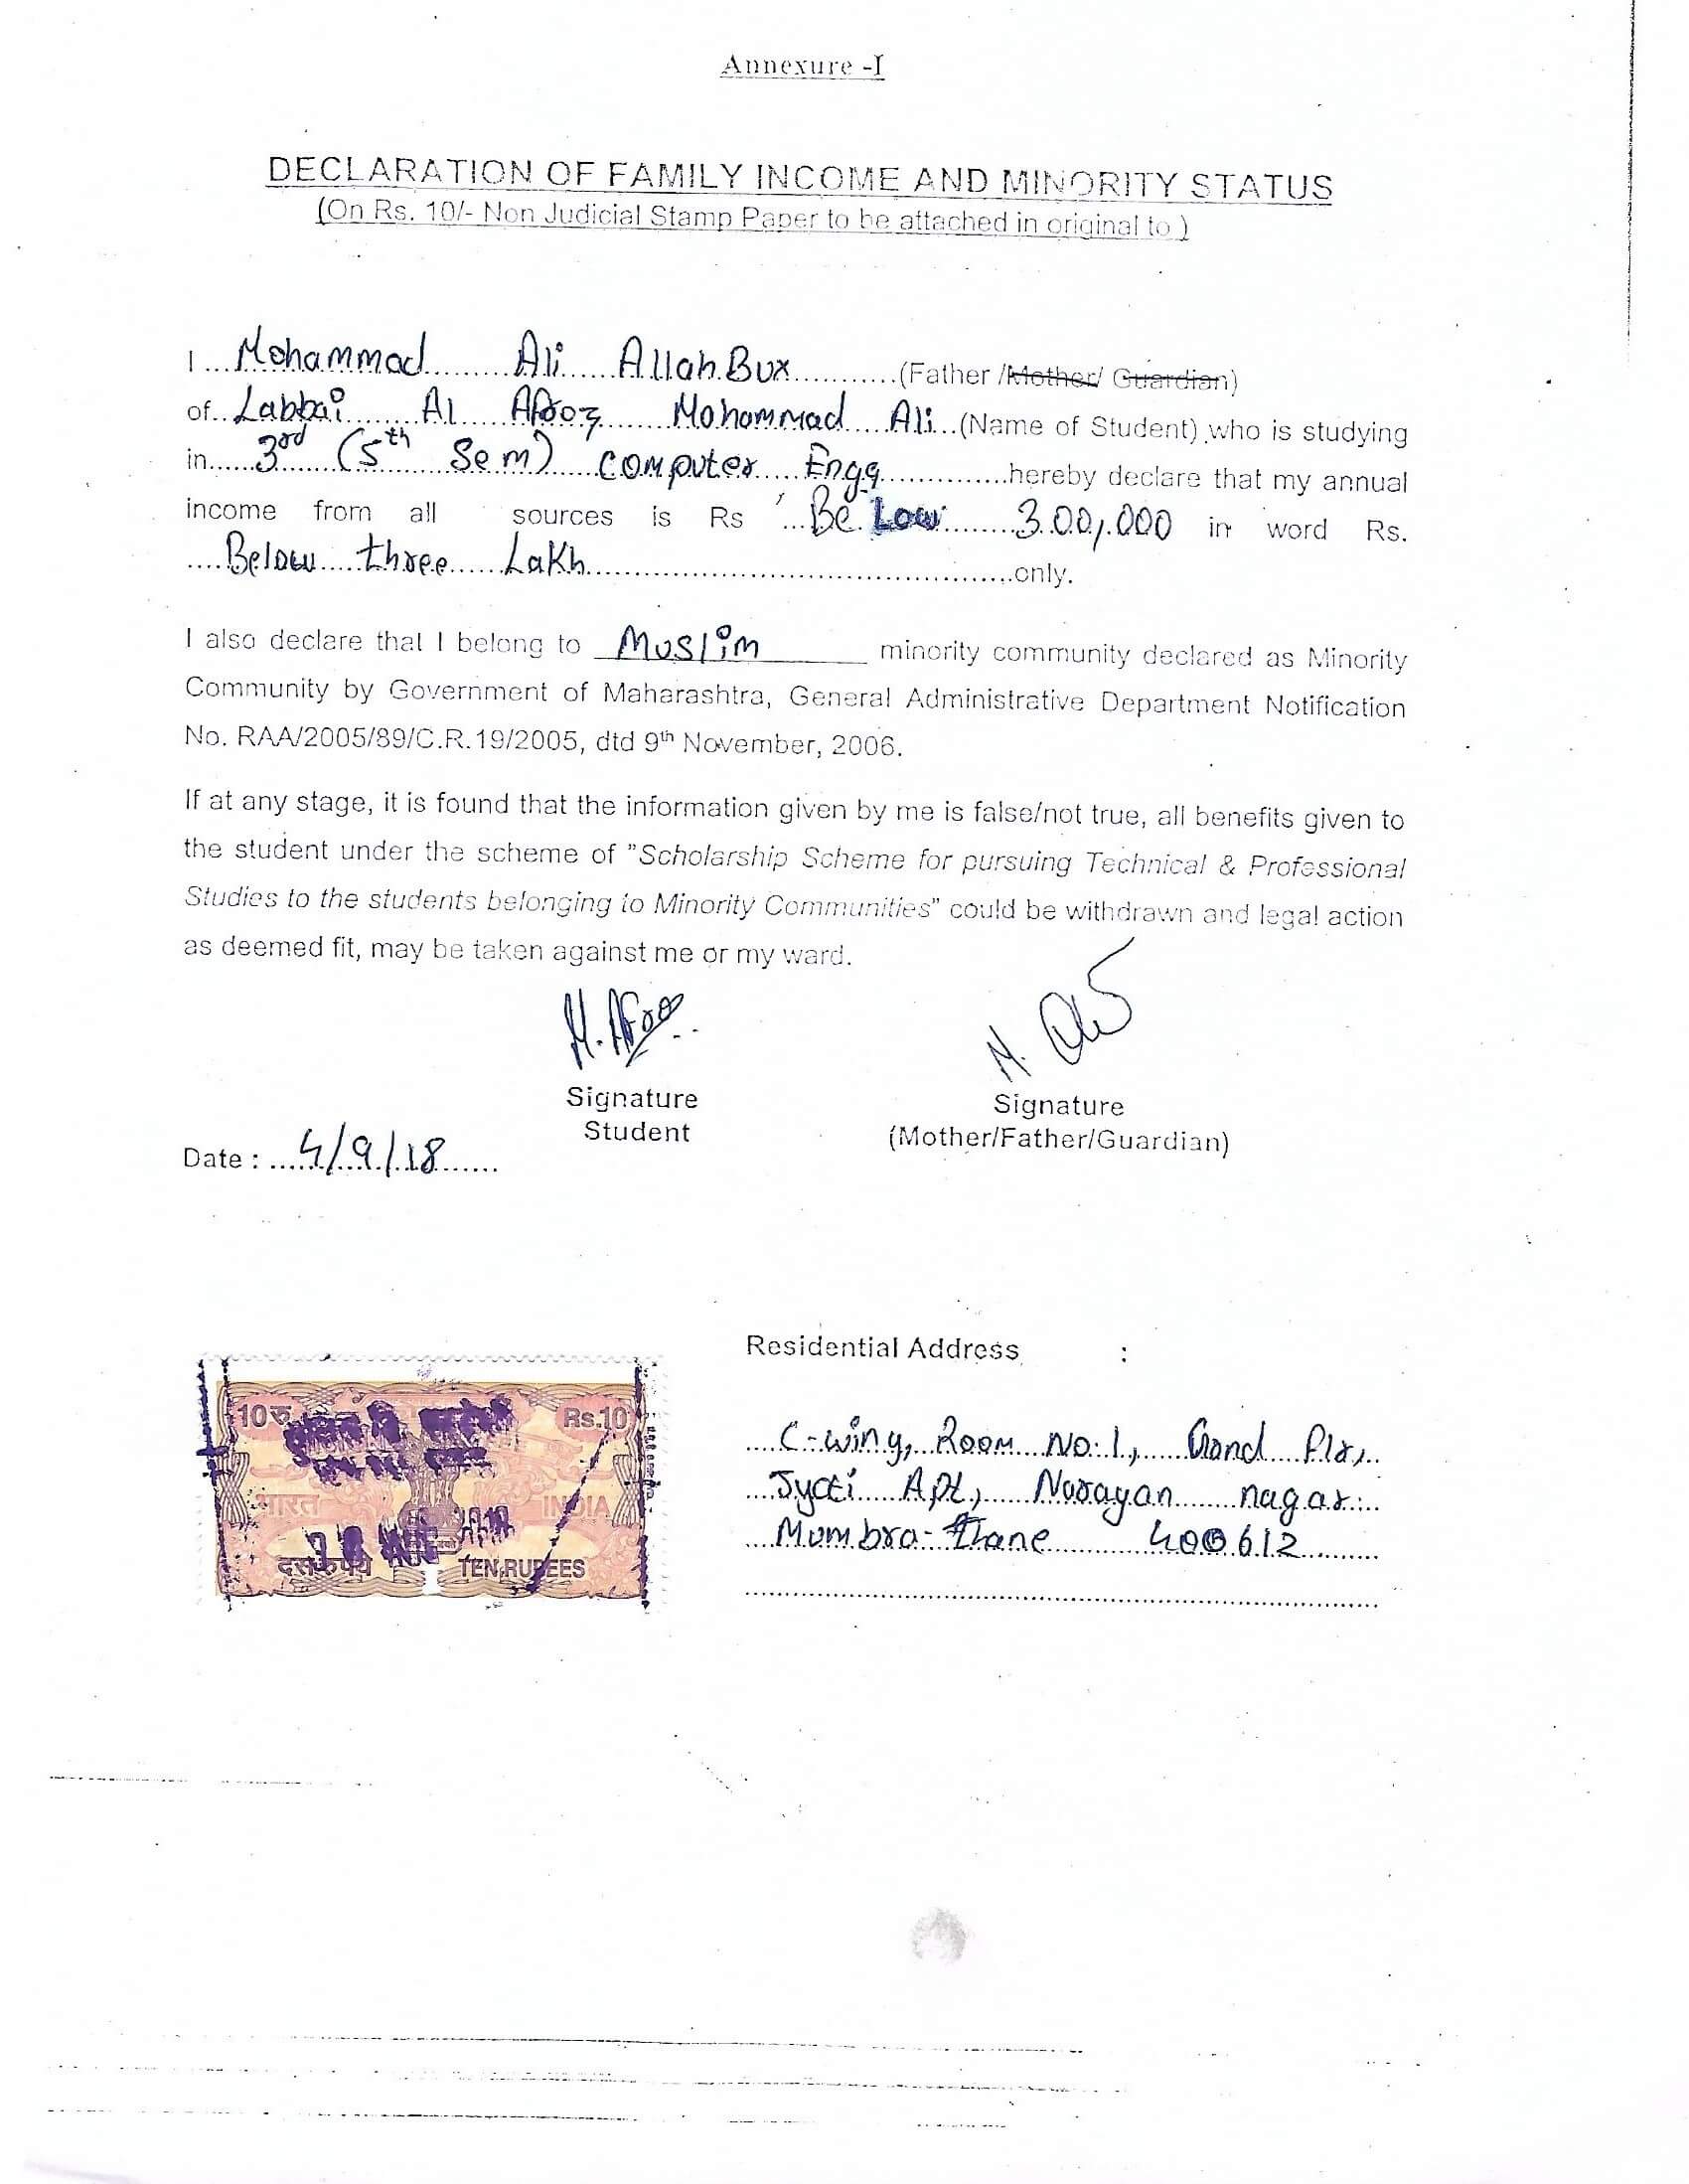 Annexure -I
DECLARATION OF FAMILY INCOME AND MINORITY STATUS
(On Rs. 10/- Non Judicial Stamp Paper to be attached in original to )
I Mohammad Ali Allah Bux (Father /Mother/ Guardian)
of Labbai Al Afroz Mohammad Ali (Name of Student) who is studying
in 3rd (5th Sem) Computer Engg hereby declare that my annual
income from all sources is Rs Be Low 300,000 in word Rs.
Below three Lakh only.
I also declare that I belong to Muslim minority community declared as Minority
Community by Government of Maharashtra, General Administrative Department Notification
No. RAA/2005/89/C.R.19/2005, dtd 9th November, 2006.
If at any stage, it is found that the information given by me is false/not true, all benefits given to
the student under the scheme of "Scholarship Scheme for pursuing Technical & Professional
Studies to the students belonging to Minority Communities" could be withdrawn and legal action
as deemed fit, may be taken against me or my ward.
Signature Signature
Student (Mother/Father/Guardian)
Date : 4/9/18
Residential Address :
C-wing, Room No: 1,
Jyoti Apt, Narayan nagar
Mumbra- Thane 400612
10रु Rs.10
भारत INDIA
दस रुपये TEN RUPEES